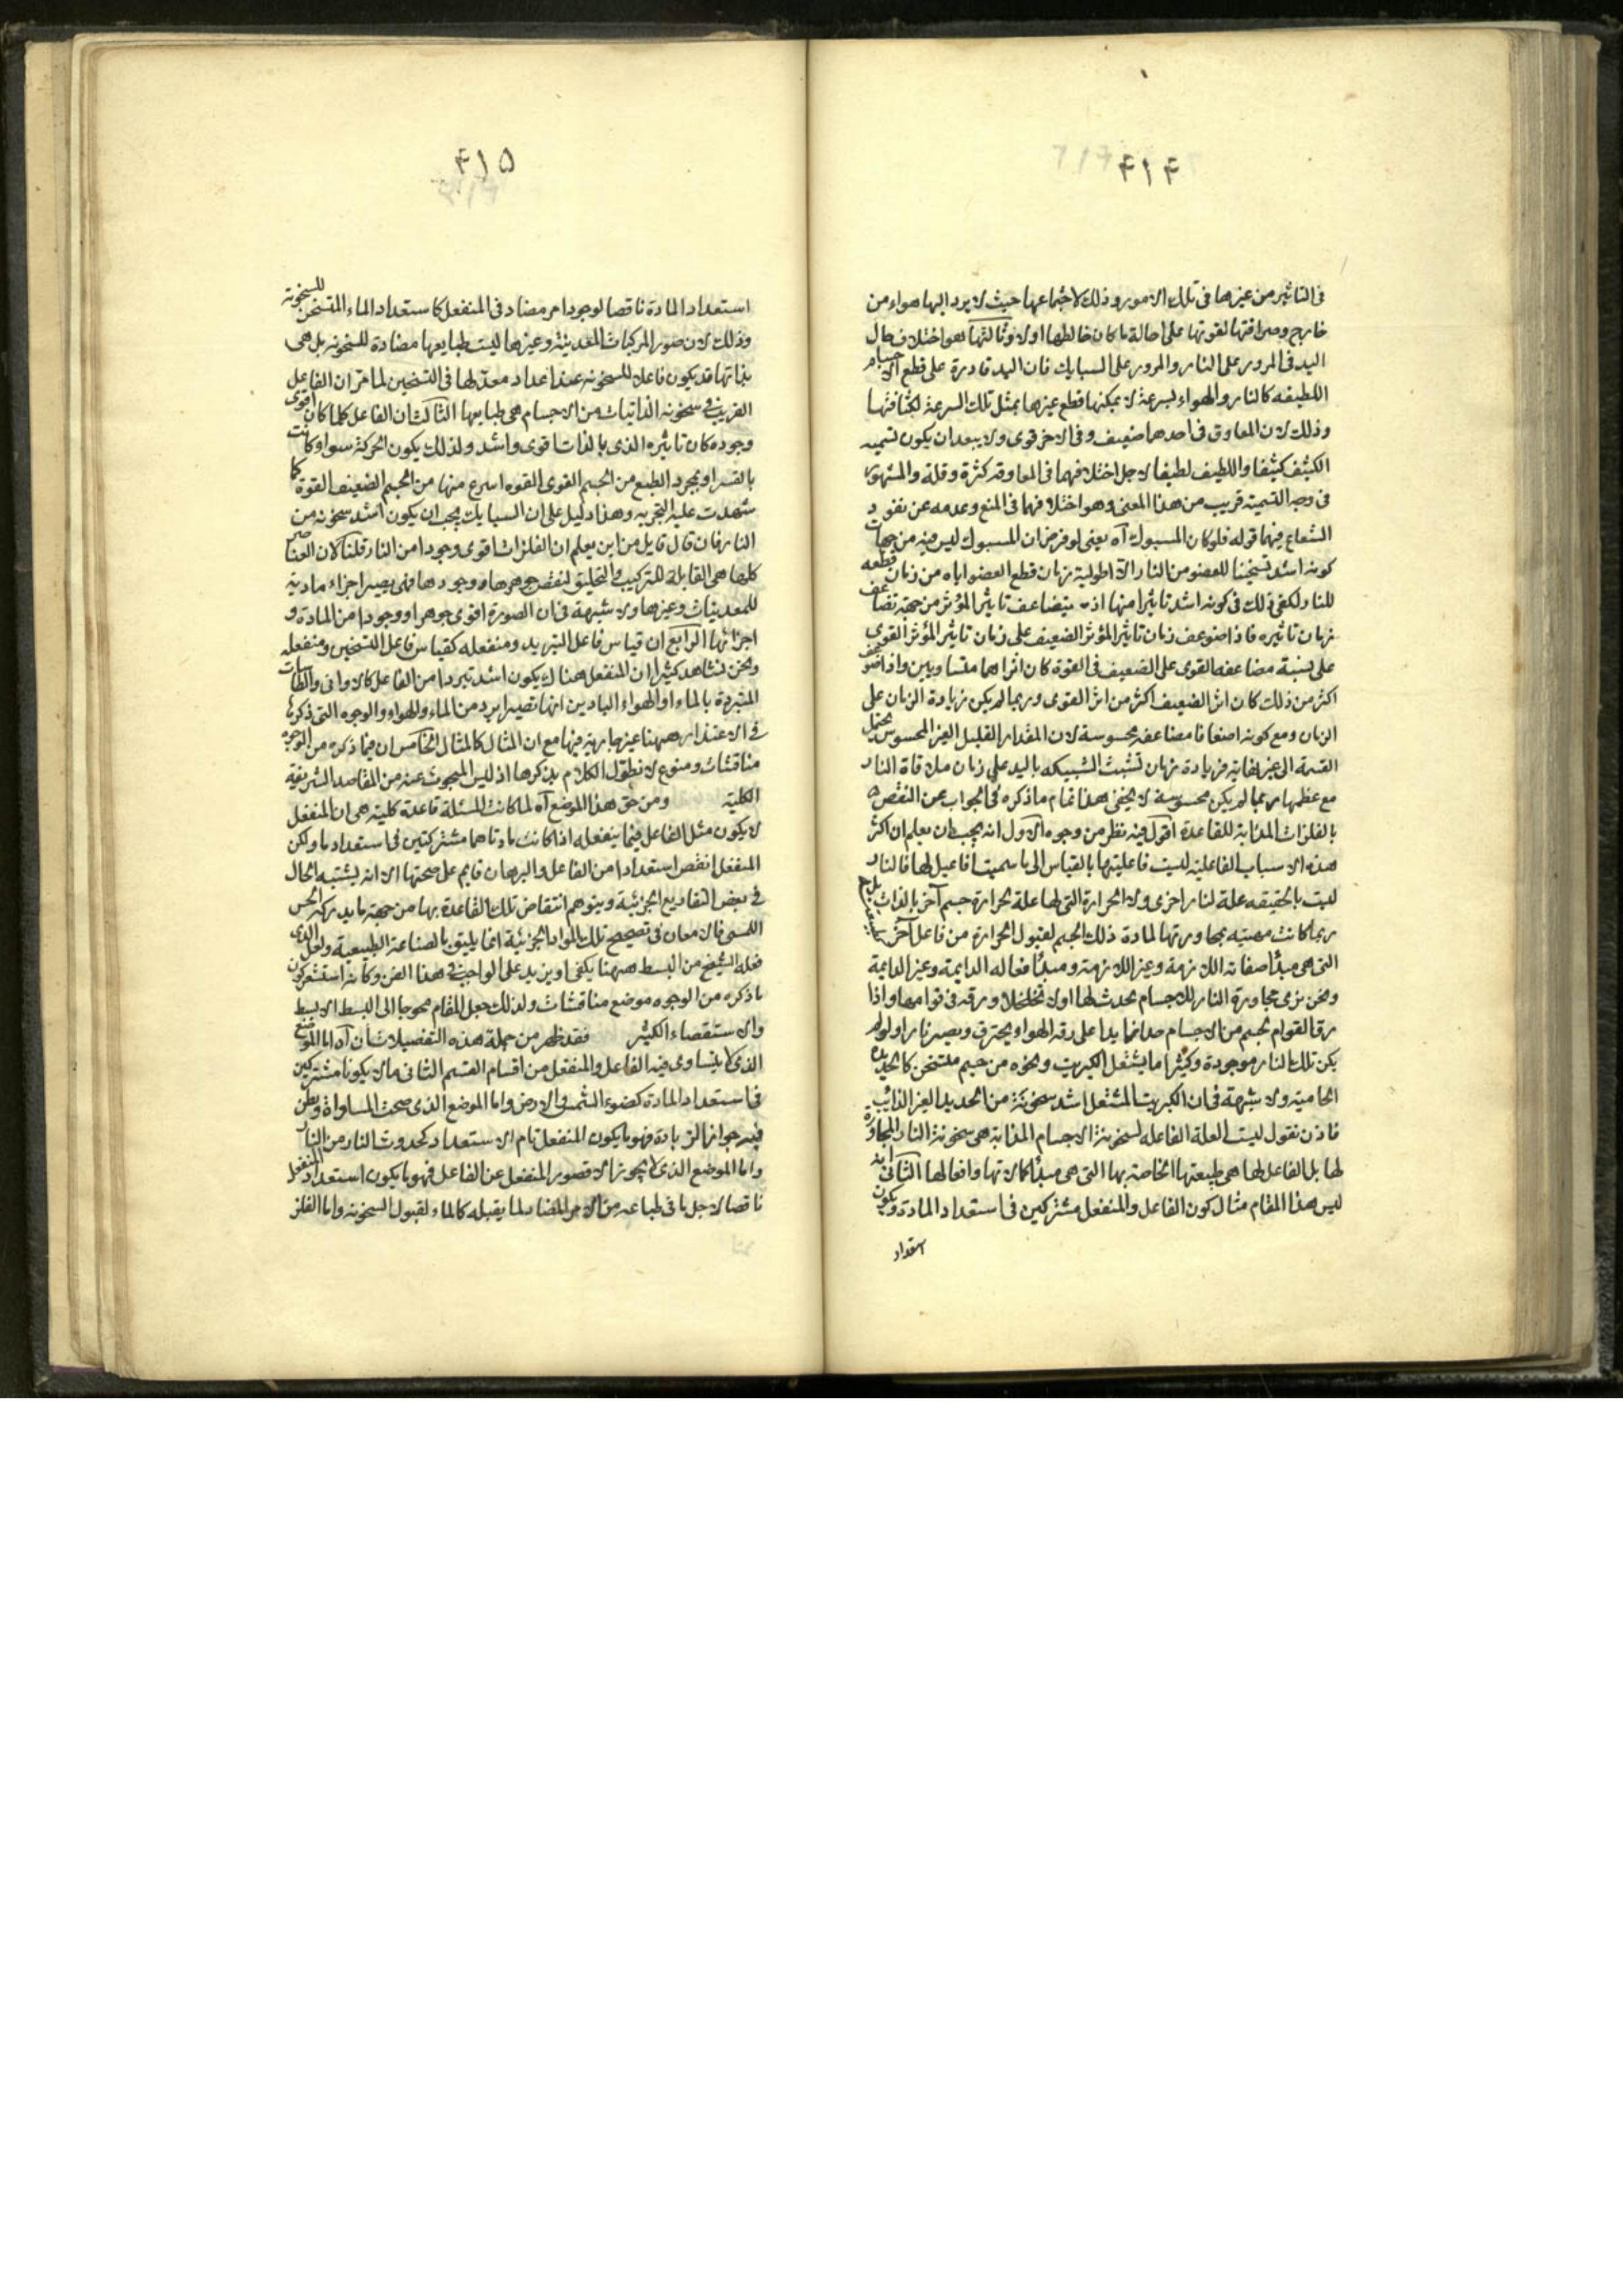 ۴۱۴
فى التاثير من غيرها فى تلك الامور وذلك لاجتماعها حيث لا يرد اليها هواء من
خارج وصرافتها لقوتها على احالة ما كان خالطها اولا وثالثها هو اختلاف حال
اليد فى المرور على النار والمرور على السبايك فان اليد قادرة على قطع الاجسام
اللطيفه كالنار والهواء بسرعة لا يمكنها قطع غيرها بمثل تلك السرعة لكثافتها
وذلك لان المعاوق فى احدهما ضعيف وفى الاخر قوى ولا يبعد ان يكون تسميه
الكثيف كثيفا واللطيف لطيفا لاجل اختلافهما فى المعاوقه كثرة وقلة والمشهور
فى وجه التسمية قريب من هذا المعنى وهو اختلافهما فى المنع وعدمه عن نفوذ
الشعاع فيهما قوله فلو كان المسبوك آه يعنى لو فرض ان المسبوك ليس فيه من جهات
كونه اشد تسخينا للعضو من النار الا اطولية زمان قطع العضو اياه من زمان قطعه
للنار لكفى ذلك فى كونه اشد تاثيرا منها اذ يتضاعف تاثير المؤثر من جهة تضاعف
زمان تاثيره فاذا ضوعف زمان تاثير المؤثر الضعيف على زمان تاثير المؤثر القوى
على نسبة مضاعفه القوى على الضعيف فى القوة كان اثراهما متساويين واذا ضوعف
اكثر من ذلك كان اثر الضعيف اكثر من اثر القوى وربما لم يكن زيادة الزمان على
الزمان ومع كونه اضعافا مضاعفه محسوسة لان المقدار القليل الغير المحسوس يحتمل
القسمة الى غير نهاية فزيادة زمان تشبث السبيكه باليد على زمان ملاقاة النار
مع عظمها ربما لم يكن محسوسة لا يخفى هذا تمام ما ذكره فى الجواب عن النقض
بالفلزات المذابة للقاعدة اقول فيه نظر من وجوه الاول انه يجب ان يعلم ان اكثر
هذه الاسباب الفاعلية ليست فاعليتها بالقياس الى ما سميت افاعيل لها فالنار
ليست بالحقيقه علة لنار اخرى ولا الحرارة التى لها علة لحرارة جسم آخر بالذات بل
ربما كانت مهيئه بمجاورتها لمادة ذلك الجسم لقبول الحرارة من فاعل آخر
التى هى مبدأ صفاته اللازمة وغير اللازمة ومبدأ افعاله الدايمة وغير الدايمة
ونحن نرى مجاورة النار للاجسام يحدث لها اولا تخلخلا ورقه فى قوامها واذا
رق القوام لجسم من الاجسام على رقه الهواء يحترق ويصير نارا ولو لم
يكن تلك النار موجودة وكثيرا ما يشتعل الكبريت ونحوه من جسم متسخن كالحديدة
الحامية ولا شبهة فى ان الكبريت المشتعل اشد سخونة من الحديد الغير الذائب
فاذن نقول ليست العلة الفاعله لسخونة الاجسام المذابة هى سخونة النار المجاورة
لها بل الفاعل لها هى طبيعتها الخاصة بها التى هى مبدأ كمالاتها وافعالها الثانى انه
ليس هذا المقام مثال كون الفاعل والمنفعل مشتركين فى استعداد المادة ويكون
استعداد
۴۱۵
استعداد المادة ناقصا لوجود امر مضاد فى المنفعل كاستعداد الماء المتسخن للسخونة
وذلك لان صور المركبات المعدنية وغيرها ليست طبايعها مضادة للسخونه بل هى
بذاتها قد يكون فاعلا للسخونه عند اعداد معد لها فى التسخين لما مر ان الفاعل
القريب فى سخونه الذاتيات من الاجسام هى طبايعها الثالث ان الفاعل كلما كان اقوى
وجوده كان تاثيره الذى بالذات اقوى واشد ولذلك يكون الحركة سواء كانت
بالقسر او بمجرد الطبع من الجسم القوى القوه اسرع منها من الجسم الضعيف القوة كما
شهدت عليه التجربه وهذا دليل على ان السبايك يجب ان يكون اشد سخونه من
النار فان قال قايل من اين يعلم ان الفلزات اقوى وجودا من النار قلنا لان العناصر
كلها هى القابلة للتركيب والتخليق لنقص جوهرها ووجودها فهى يصير اجزاء مادية
للمعدنيات وغيرها ولا شبهة فى ان الصورة اقوى جوهرا ووجودا من المادة و
اجزائها الرابع ان قياس فاعل التبريد ومنفعله كقياس فاعل التسخين ومنفعله
ونحن نشاهد كثيرا ان المنفعل هناك يكون اشد تبردا من الفاعل كالاوانى والطاسات
المتبردة بالماء او الهواء الباردين انها تصير ابرد من الماء والهواء والوجوه التى ذكرها
فى الاعتذار ههنا غير جارية فيها مع ان المثال كالمثال الخامس ان فيما ذكره من الوجوه
مناقشات ومنوع لا نطول الكلام بذكرها اذ ليس المبحوث عنه من المقاصد الشريفة
الكلية ومن حق هذا الموضع آه لما كانت المسئلة قاعدة كلية هى ان المنفعل
لا يكون مثل الفاعل فيما ينفعله اذا كانت مادتاهما مشتركتين فى استعدادما ولكن
المنفعل انقص استعدادا من الفاعل والبرهان قايم على صحتها الا انه يشتبه الحال
فى بعض التفاريع الجزئية ويتوهم انتقاض تلك القاعدة بها من جهة ما يدركه الحس
اللمسى فالامعان فى تصحيح تلك المواد الجزئية انما يليق بالصناعة الطبيعية ولعل الذى
فعله الشيخ من البسط ههنا يكفى او يزيد على الواجب فى هذا الفن وكانه استشعر كون
ما ذكره من الوجوه موضع مناقشات ولذلك جعل المقام محوجا الى البسط الابسط
والاستقصاء الكثير فقد ظهر من جملة هذه التفصيلات ان آه اما الموضع
الذى لا يتساوى فيه الفاعل والمنفعل من اقسام القسم الثانى ما لا يكونا مشتركين
فى استعداد المادة كضوء الشمس والارض واما الموضع الذى صحت المساواة ويظن
فيه جواز الزيادة فهو ما يكون المنفعل تام الاستعداد كحدوث النار من النار
واما الموضع الذى لا يجوز الا قصور المنفعل عن الفاعل فهو ما يكون استعداد المنفعل
ناقصا لاجل ما فى طباعه من الامر المضاد لما يقبله كالماء لقبول السخونه واما الفلز